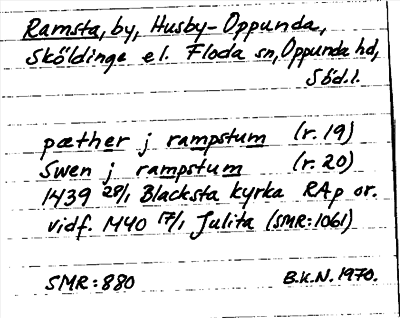 Ramsta, by, Husby-Oppunda,
Sköldinge el. Floda sn, Oppunda hd,
Söd. l.
pæther j rampstum (r. 19)
Swen j rampstum (r. 20)
1439 28/1 Blacksta kyrka RAp or.
vidf. 1440 17/1 Julita (SMR: 1061)
SMR: 880 B.K.N. 1970.